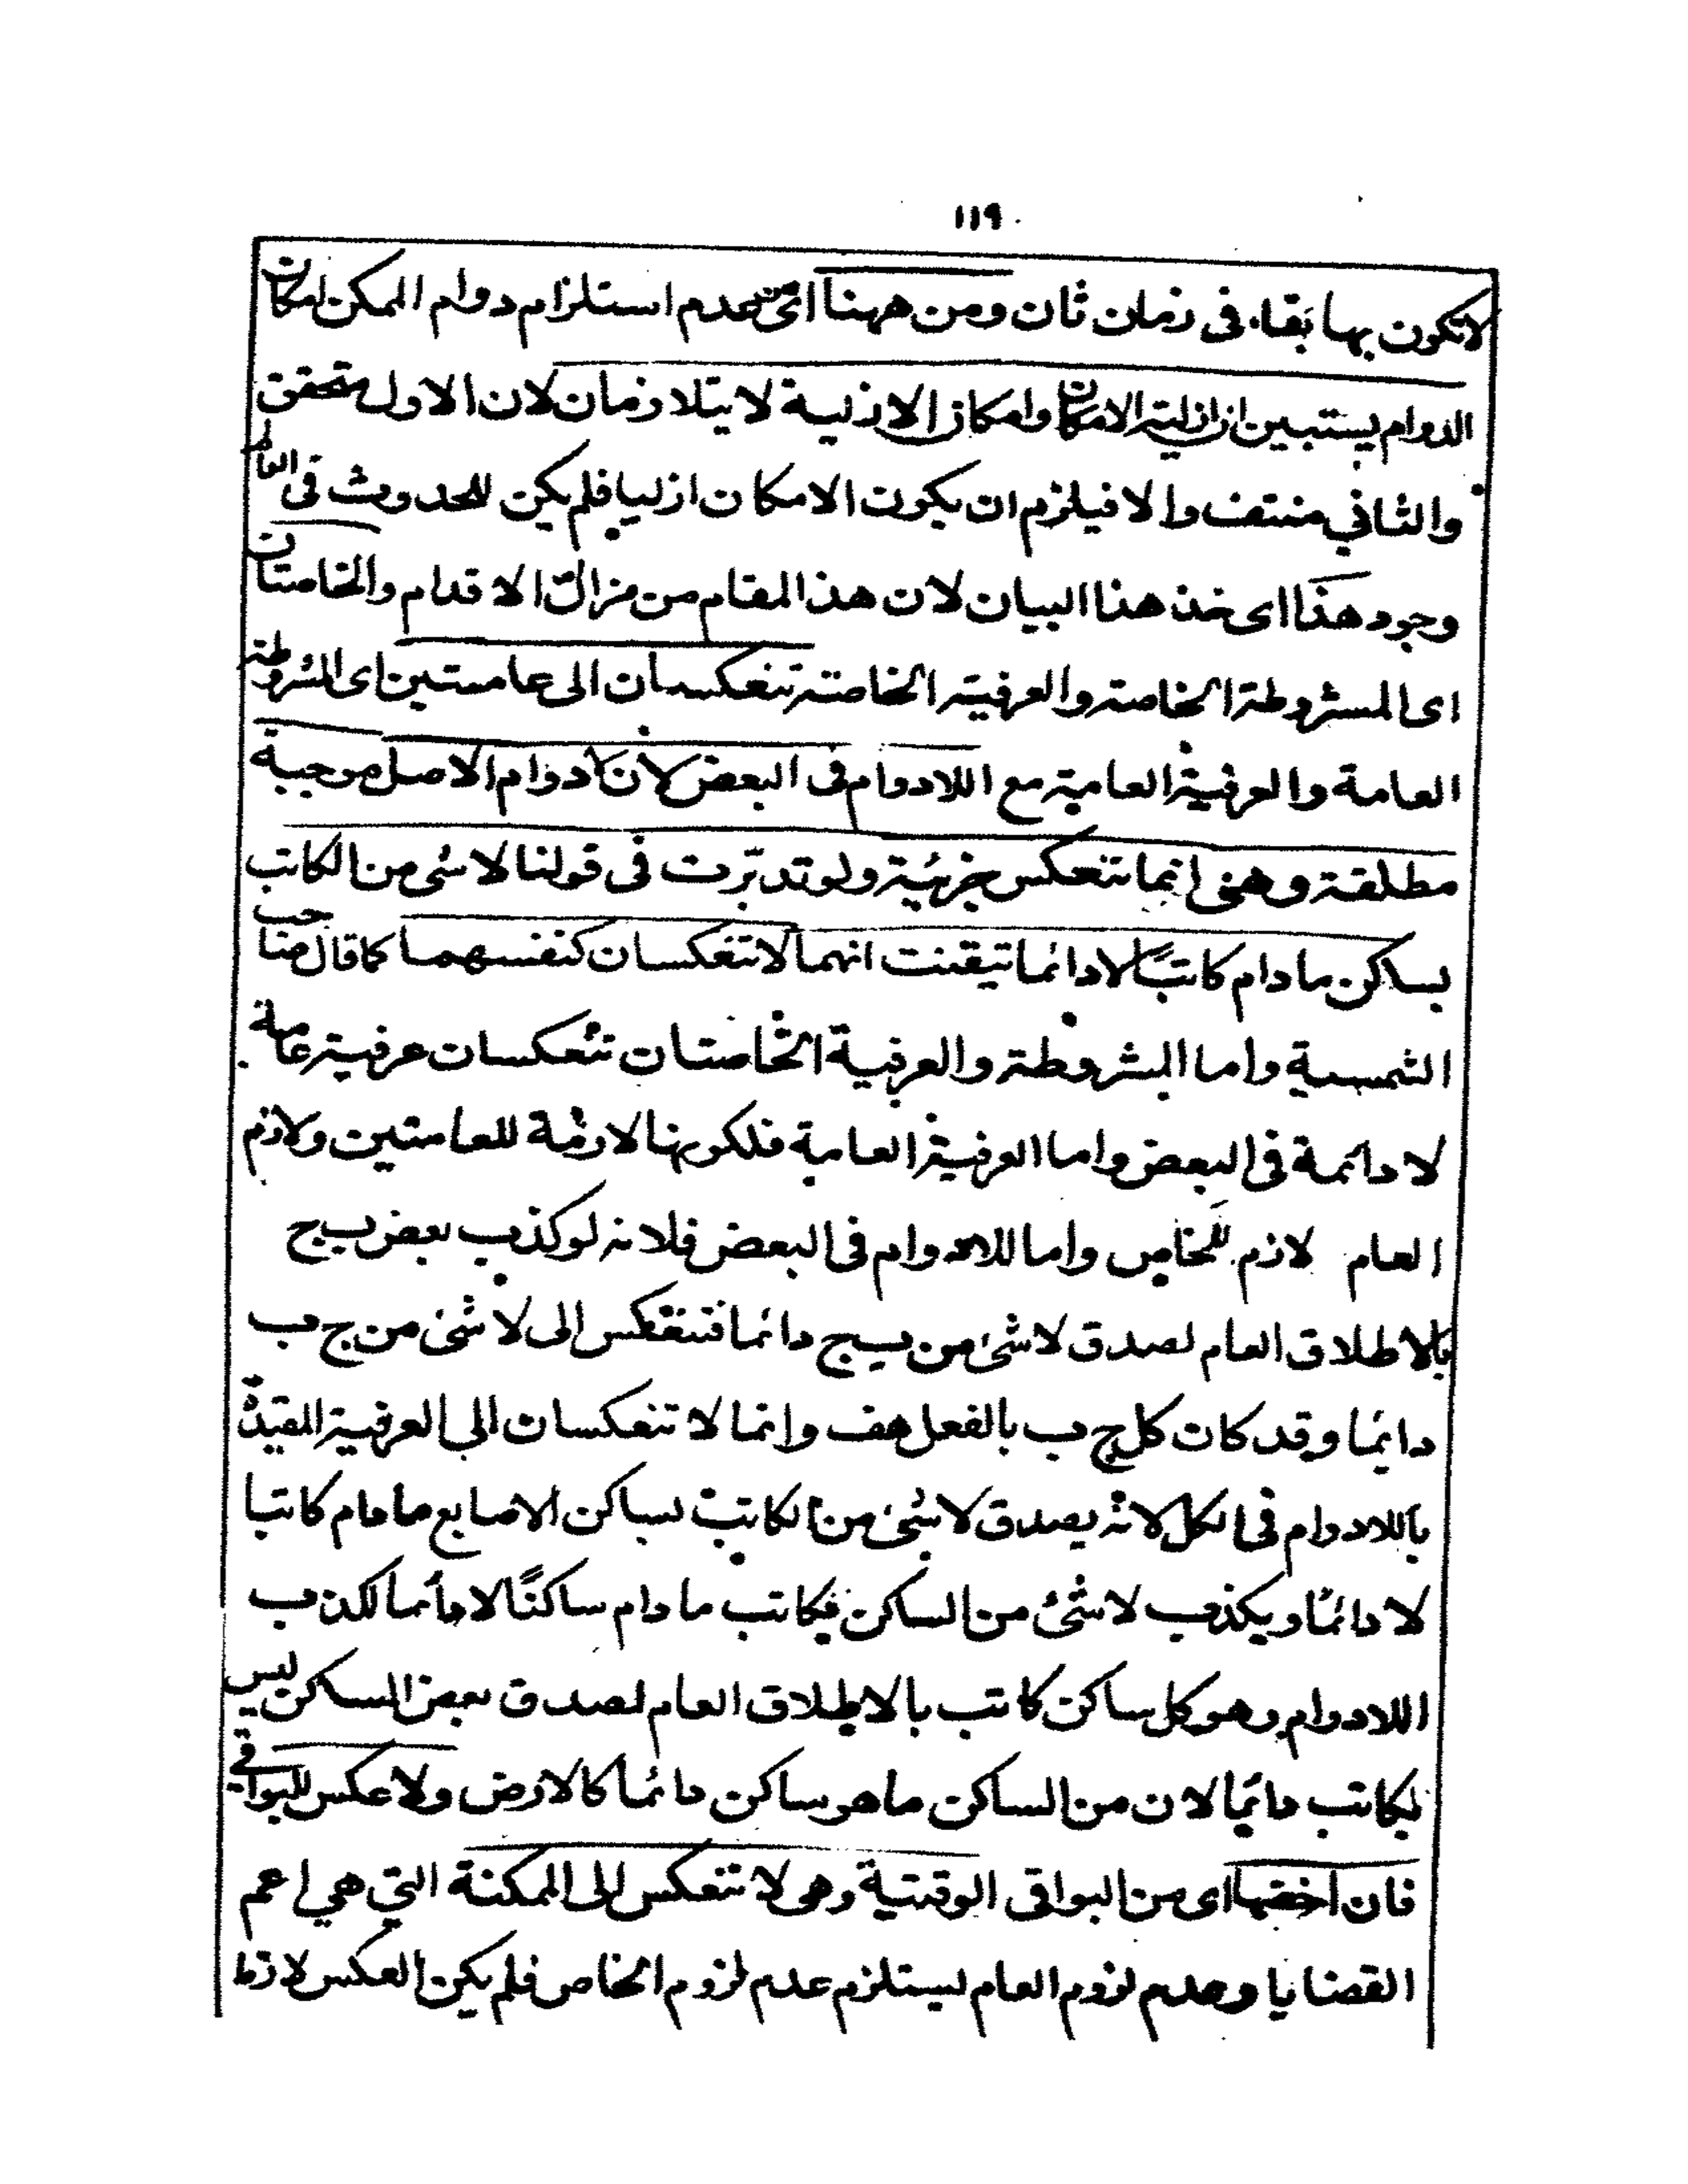 ١١٩
لا تكون بها بقاء فى زمان ثان ومن ههنا اى من عدم استلزام دوام الممكن امكان
الدوام يستبين ان ازلية الامكان وامكان الازلية لا يتلازمان لان الاول متحقق
والثاني منتف والا فيلزم ان يكون الامكان ازليا فلم يكن للحدوث فى العالم
وجود هذا اى خذ هذا البيان لان هذا المقام من مزال الاقدام والخاصتان
اى المشروطة الخاصة والعرفية الخاصة تنعكسان الى عامتين اى المشروطة
العامة والعرفية العامية مع اللادوام فى البعض لأن لادوام الاصل موجبة
مطلقة وهى انما تنعكس جزئية ولو تدبّرت فى قولنا لا شئ من الكاتب
بساكن ما دام كاتبًا لا دائما تيقنت انهما لا تنعكسان كنفسهما كما قال صاحب
الشمسية واما المشروطة والعرفية الخاصتان تنعكسان عرفية عامة
لا دائمة فى البعض واما العرفية العامية فلكونها لازمة للعامتين ولازم
العام لازم للخاص واما اللادوام فى البعض فلانه لو كذب بعض ب ج
بالاطلاق العام لصدق لا شئ من ب ج دائما فتنعكس الى لا شئ من ج ب
دائما وقد كان كل ج ب بالفعل هف وانما لا تنعكسان الى العرفية المقيدة
باللادوام فى الكل لانه يصدق لا شئ من الكاتب بساكن الاصابع ما دام كاتبا
لا دائمًا ويكذب لا شئ من الساكن بكاتب ما دام ساكنًا لا دائما لكذب
اللادوام وهو كل ساكن كاتب بالاطلاق العام لصدق بعض السكن ليس
بكاتب دائما لان من الساكن ما هو ساكن دائما كالارض ولا عكس للبواقي
فان اخصها اى من البواقى الوقتية وهى لا تنعكس الى الممكنة التي هي اعم
القضايا وعدم لزوم العام ليستلزم عدم لزوم الخاص فلم يكن العكس لازما